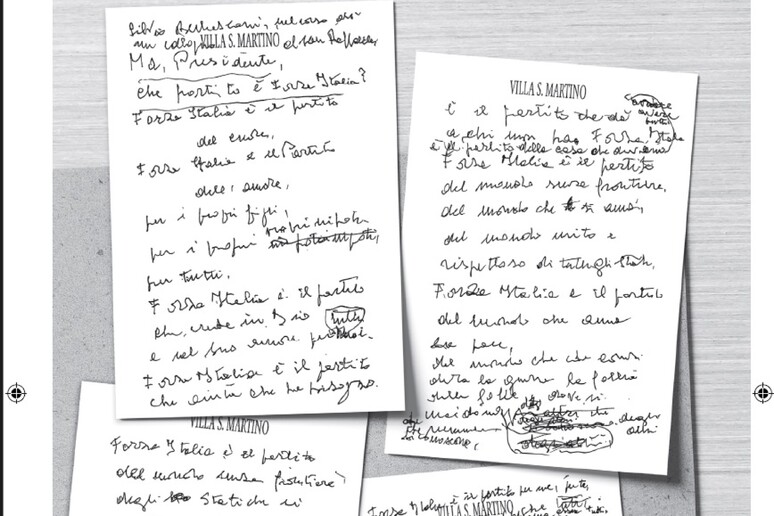 Silvio Berlusconi, nel corso di
un colloquio al San Raffaele,
VILLA S. MARTINO
Ma, Presidente,
che partito è Forza Italia?
Forza Italia è il partito
del cuore,
Forza Italia è il Partito
dell'amore,
per i propri figli,
per i propri nipoti,
per tutti.
Forza Italia è il partito
che crede in Dio
e nel suo amore per noi.
Forza Italia è il partito
che aiuta chi ha bisogno.
VILLA S. MARTINO
è il partito che dà
a chi non ha, Forza Italia
è il partito delle case che
Forza Italia è il partito
del mondo senza frontiere,
del mondo che si ama,
del mondo unito e
rispettoso di tutti gli Stati,
Forza Italia è il partito
del mondo che ama
la pace,
del mondo che considera
la guerra la follia
delle follie, dove si
degli
altri
si conoscono,
VILLA S. MARTINO
Forza Italia è il partito
del mondo senza frontiere
degli Stati che si
Forza Italia è il partito per me,
VILLA S. MARTINO